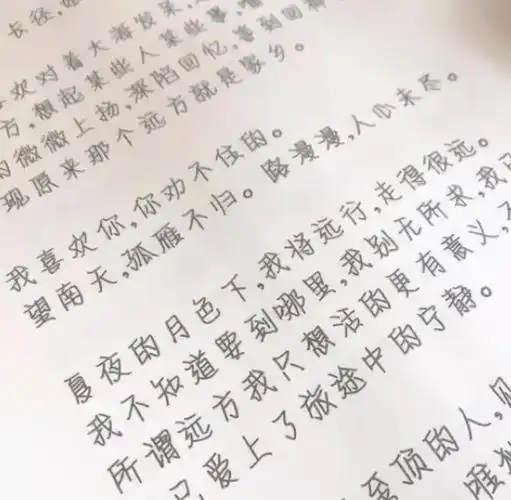 长径,
欢对着大海发呆,
方,想起某些人某些事,嘴
的微微上扬,深陷回忆,等到回
现原来那个远方就是家乡。
我喜欢你,你劝不住的。
望南天,孤雁不归。路漫漫,人心未尽。
夏夜的月色下,我将远行,走得很远。
我不知道要到哪里,我别无所求,我
所谓远方我只想活的更有意义,
已爱上了旅途中的宁静。
至顶的人,见
唯